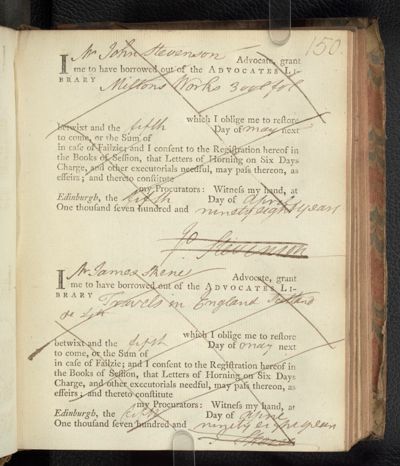 150.
I Mr John Stevenson Advocate, grant
me to have borrowed out of the ADVOCATES LI-
BRARY Miltons Works 3 vol fol
which I oblige me to reſtore
betwixt and the fifth Day of may next
to come, or the Sum of
in caſe of Failzie; and I conſent to the Regiſtration hereof in
the Books of Seſſion, that Letters of Horning on Six Days
Charge, and other executorials needful, may paſs thereon, as
effeirs; and thereto conſtitute
my Procurators: Witneſs my hand, at
Edinburgh, the fifth Day of April
One thouſand ſeven hundred and ninety eight years
Jo Stevenson
I Mr James Skene Advocate, grant
me to have borrowed out of the ADVOCATES LI-
BRARY Travels in England Scotland
which I oblige me to reſtore
betwixt and the fifth Day of may next
to come, or the Sum of
in caſe of Failzie; and I conſent to the Regiſtration hereof in
the Books of Seſſion, that Letters of Horning on Six Days
Charge, and other executorials needful, may paſs thereon, as
effeirs; and thereto conſtitute
my Procurators: Witneſs my hand, at
Edinburgh, the fifth Day of Aprile
One thouſand ſeven hundred and ninety eight years